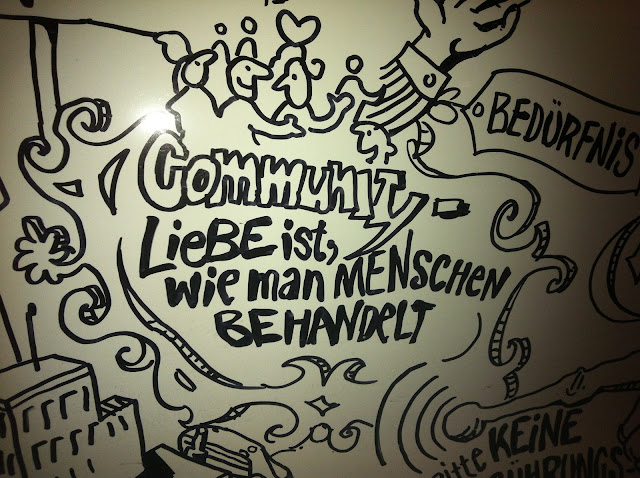 BEDÜRFNIS
Community-
LieBE ist,
wie man MENSCHEN
BEHANDELT
Bitte KEiNE